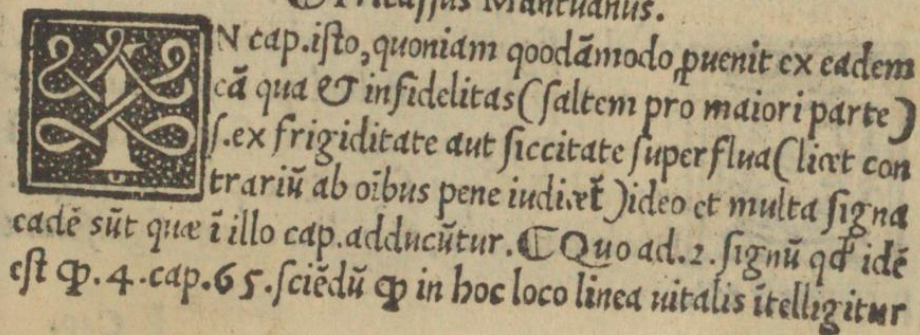 Pricassus Mantuanus.
IN cap.iſto, quoniam qoodāmodo ꝓuenit ex eadem
cā qua & infidelitas (ſaltem pro maiori parte)
ſ.ex frigiditate aut ſiccitate ſuperflua (licet con
trariū ab oībus pene iudicēt) ideo et multa ſigna
eadē sūt quæ ī illo cap.adducūtur. ⸿ Quo ad.2.ſignū qđ idē
eſt ꝙ.4.cap.65.ſciēdū ꝙ in hoc loco linea uitalis ītelligitur